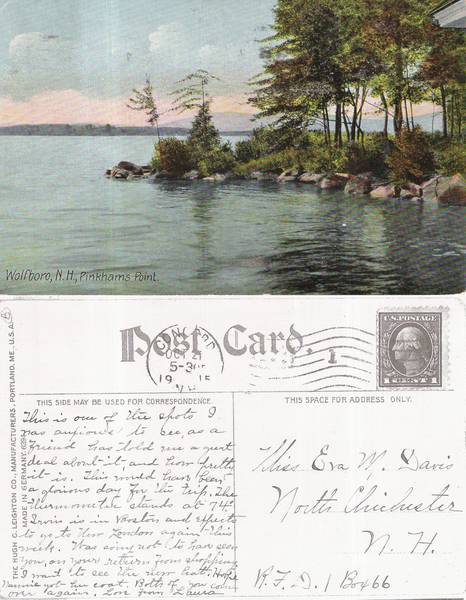 Wolfboro, N.H., Pinkhams Point.
Post Card.
CONCORD
OCT 21
5-30P
19 15
N.H.
1
U.S. POSTAGE
1 CENT 1
THIS SIDE MAY BE USED FOR CORRESPONDENCE.
THIS SPACE FOR ADDRESS ONLY.
THE HUGH C. LEIGHTON CO., MANUFACTURERS, PORTLAND, ME., U.S.A.
MADE IN GERMANY.
This is one of the spots I
was anxious to see, as a
friend has told me a great
deal about it and how pretty
it is. This must have been
a glorious day for the trip. The
thermometer stands at 74°
Irvin is in Boston and expects
to go to New London again this
week. Was sorry not to have seen
you, on your return from shopping
I want to see the new hat. Hope
got her coat. Both of you come
over again. Love from Laura
Miss Eva M. Davis
North Chichester
N. H.
R.F.D. 1 Box 66